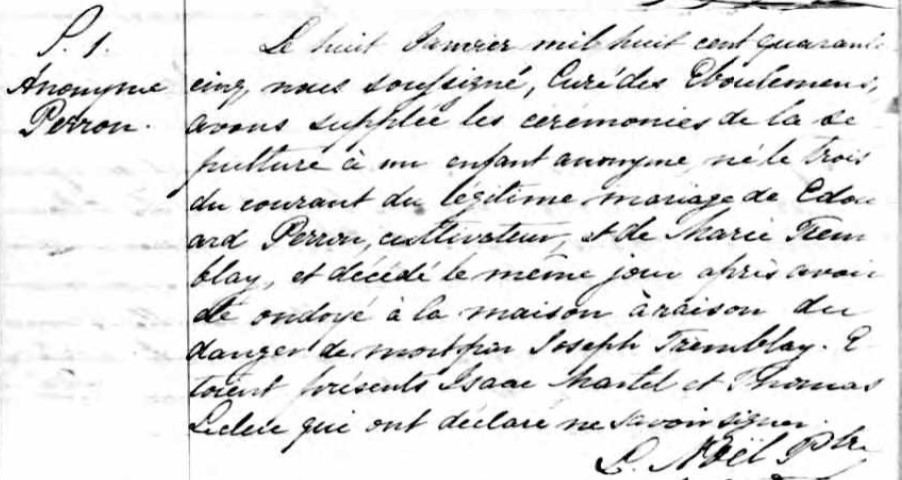 S. 1.
Anonyme
Perron.
Le huit Janvier mil huit cent quarante
cinq, nous soussigné, Curé des Eboulemens,
avons supplée les cérémonies de la sé
pulture à un enfant anonyme, né le trois
du courant du légitime mariage de Edou
ard Perron, cultivateur, et de Marie Trem
blay, et décédé le même jour après avoir
été ondoyé à la maison à raison du
danger de mort par Joseph Tremblay. E
toient présents Isaac Martel et Thomas
Leclerc qui ont déclaré ne savoir signer.
L. Noël Ptre